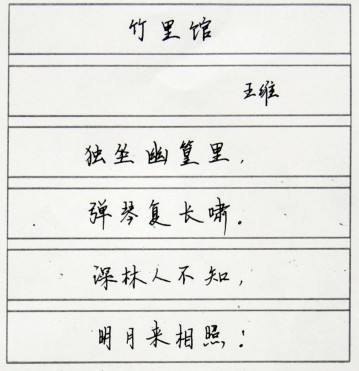 竹里馆
王维
独坐幽篁里，
弹琴复长啸。
深林人不知，
明月来相照！